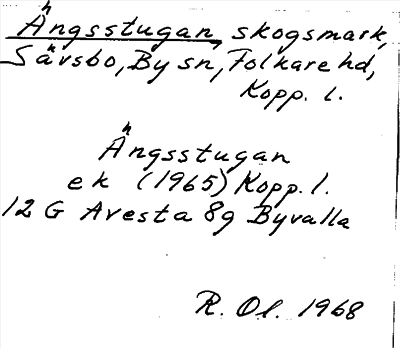 Ängsstugan, skogsmark,
Särsbo, By sn, Folkare hd,
Kopp. l.
Ängsstugan
ek (1965) Kopp. l.
12 G Avesta 8g Byvalla
R. Ol. 1968